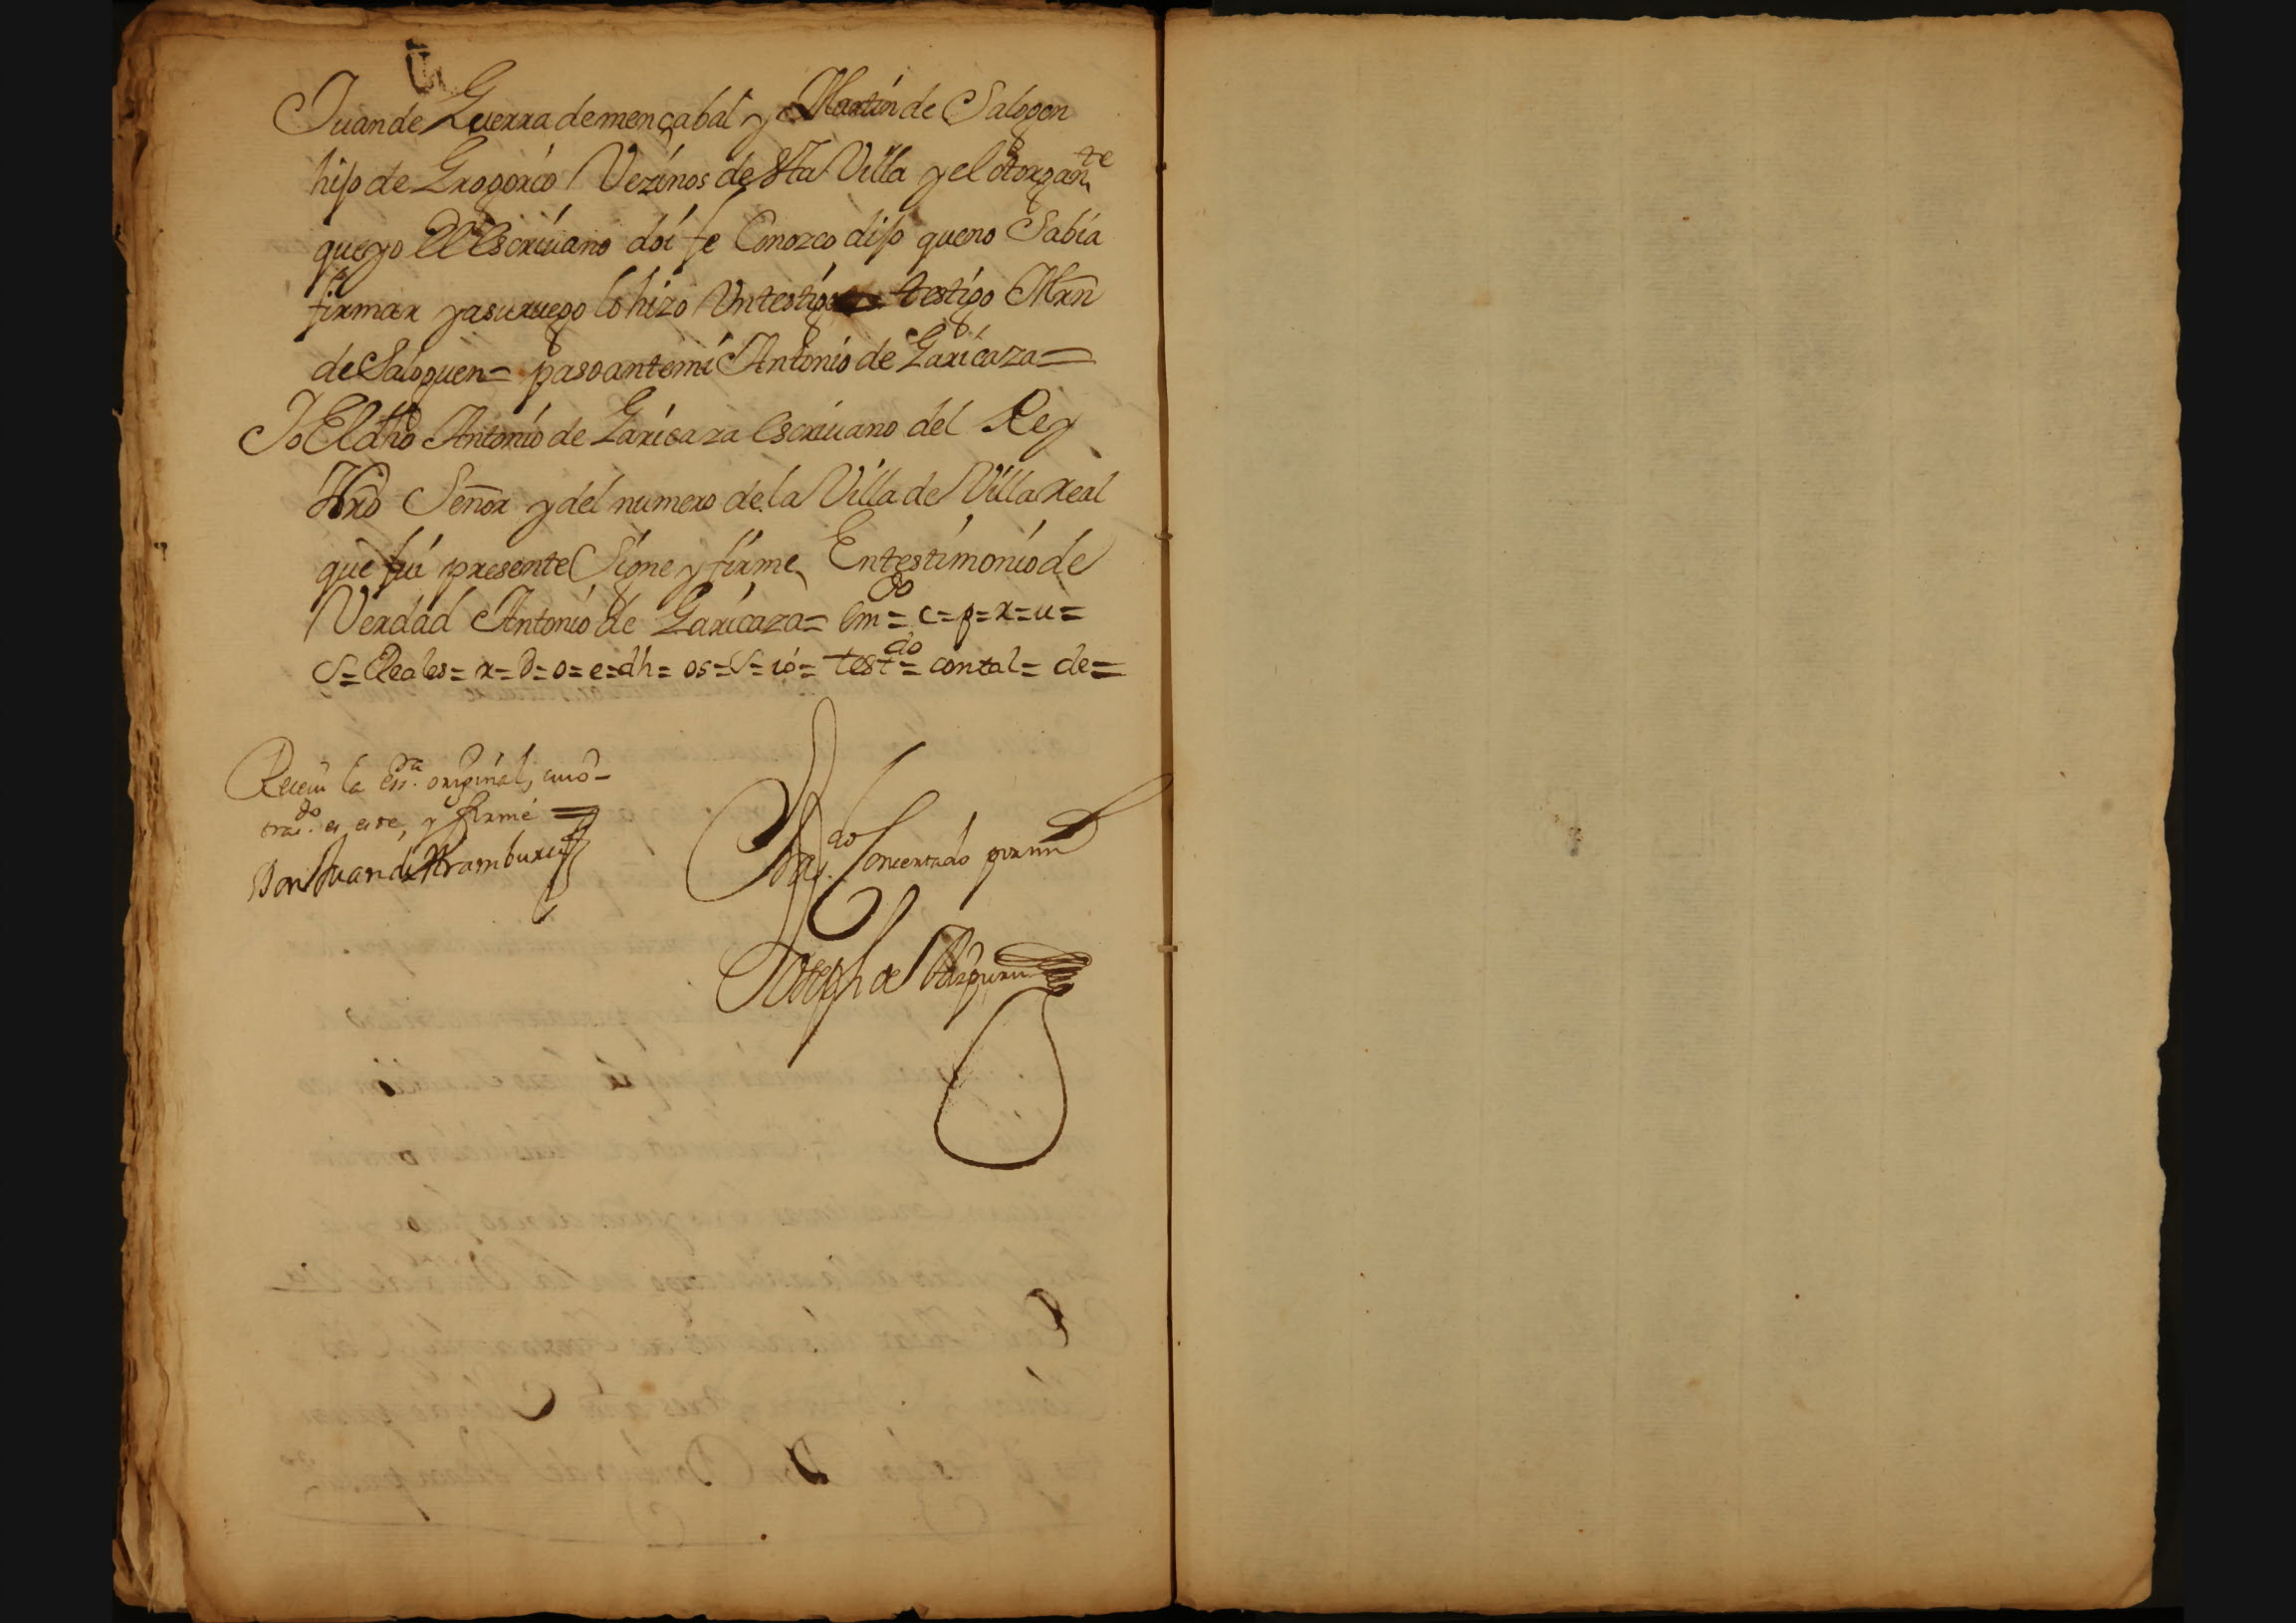 Juan de Guerra de mençabal y Martin de Salogen
hijo de Grogorio Vezinos de esta Villa y el otorgan.te
que yo El Escriuano doi fe Conozco dijo que no Sabia
firmar y a su ruego lo hizo Un testigo testigo Mrn
de Saloguen = paso ante mi Antonio de Garicaza =
Yo El dho Antonio de Garicaza Escriuano del Rey
Nro Señor y del numero de la Villa de Villa Real
que fui presente Signe y firme En testimonio de
Verdad Antonio de Garicaza = em.do = c = p = x = u =
S = Reales = x = d = o = e = dh = os = S = io = test.do = contal = de =
Receui la ess.ra original,
y firme =
Don Juan de Aramburu
Tras.do Concertado por mi
Joseph de